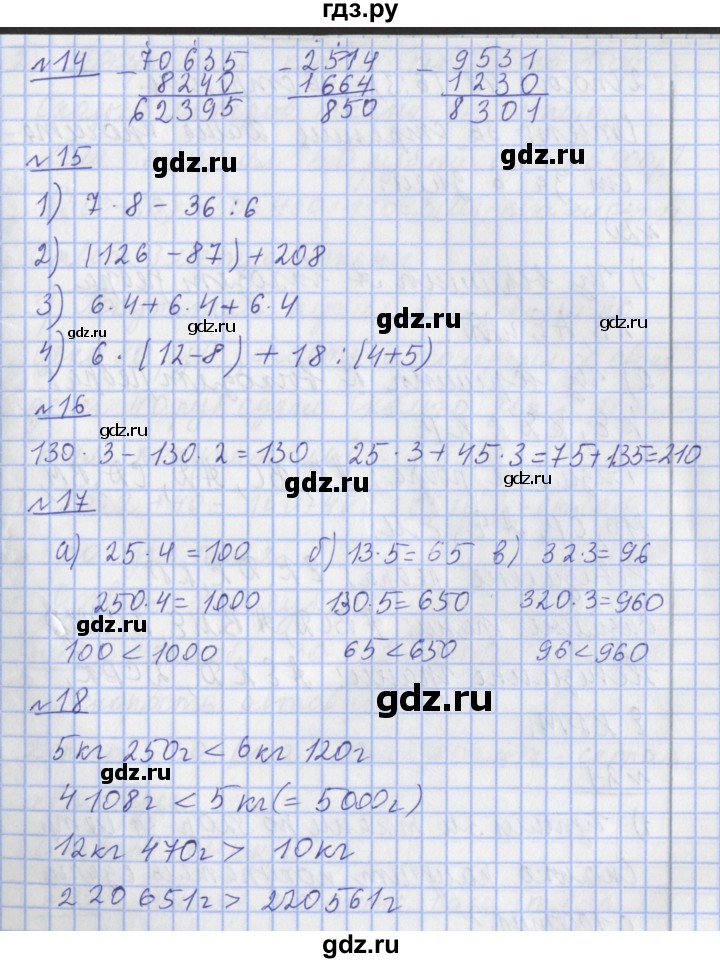 гдз.ру
№14 - 70635 - 2514 - 9531
8240 1664 1230
62395 850 8301
gdz.ru
gdz.ru
№15
1) 7·8 - 36:6
2) (126 - 87) + 208
3) 6·4 + 6·4 + 6·4
gdz.ru
gdz.ru
gdz.ru
gdz.ru
4) 6·(12-8) + 18:(4+5)
№16
gdz.ru
130·3 - 130·2 = 130 25·3 + 45·3 = 75 + 135 = 210
gdz.ru
gdz.ru
№17
а) 25·4 = 100 б) 13·5 = 65 в) 32·3 = 96
250·4 = 1000 130·5 = 650 320·3 = 960
gdz.ru
100 < 1000 65 < 650 96 < 960
gdz.ru
№18
5кг 250г < 6кг 120г
gdz.ru
4108г < 5кг (= 5000г)
12кг 470г > 10кг
220651г > 220561г
gdz.ru